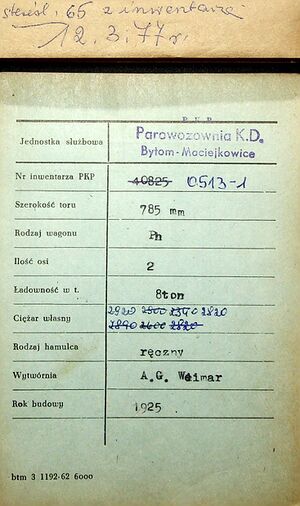 skreśl. 65 z inwentarza
12.3.77 r.
P.K.P.
Jednostka służbowa Parowozownia K.D.
Bytom-Maciejkowice
Nr inwentarza PKP 40825 0513-1
Szerokość toru 785 mm
Rodzaj wagonu Ph
Ilość osi 2
Ładowność w t. 8ton
Ciężar własny 2920 2800 2820
2890 2600 2820
Rodzaj hamulca ręczny
Wytwórnia A.G. Weimar
Rok budowy 1925
btm 3 1192-62 6000